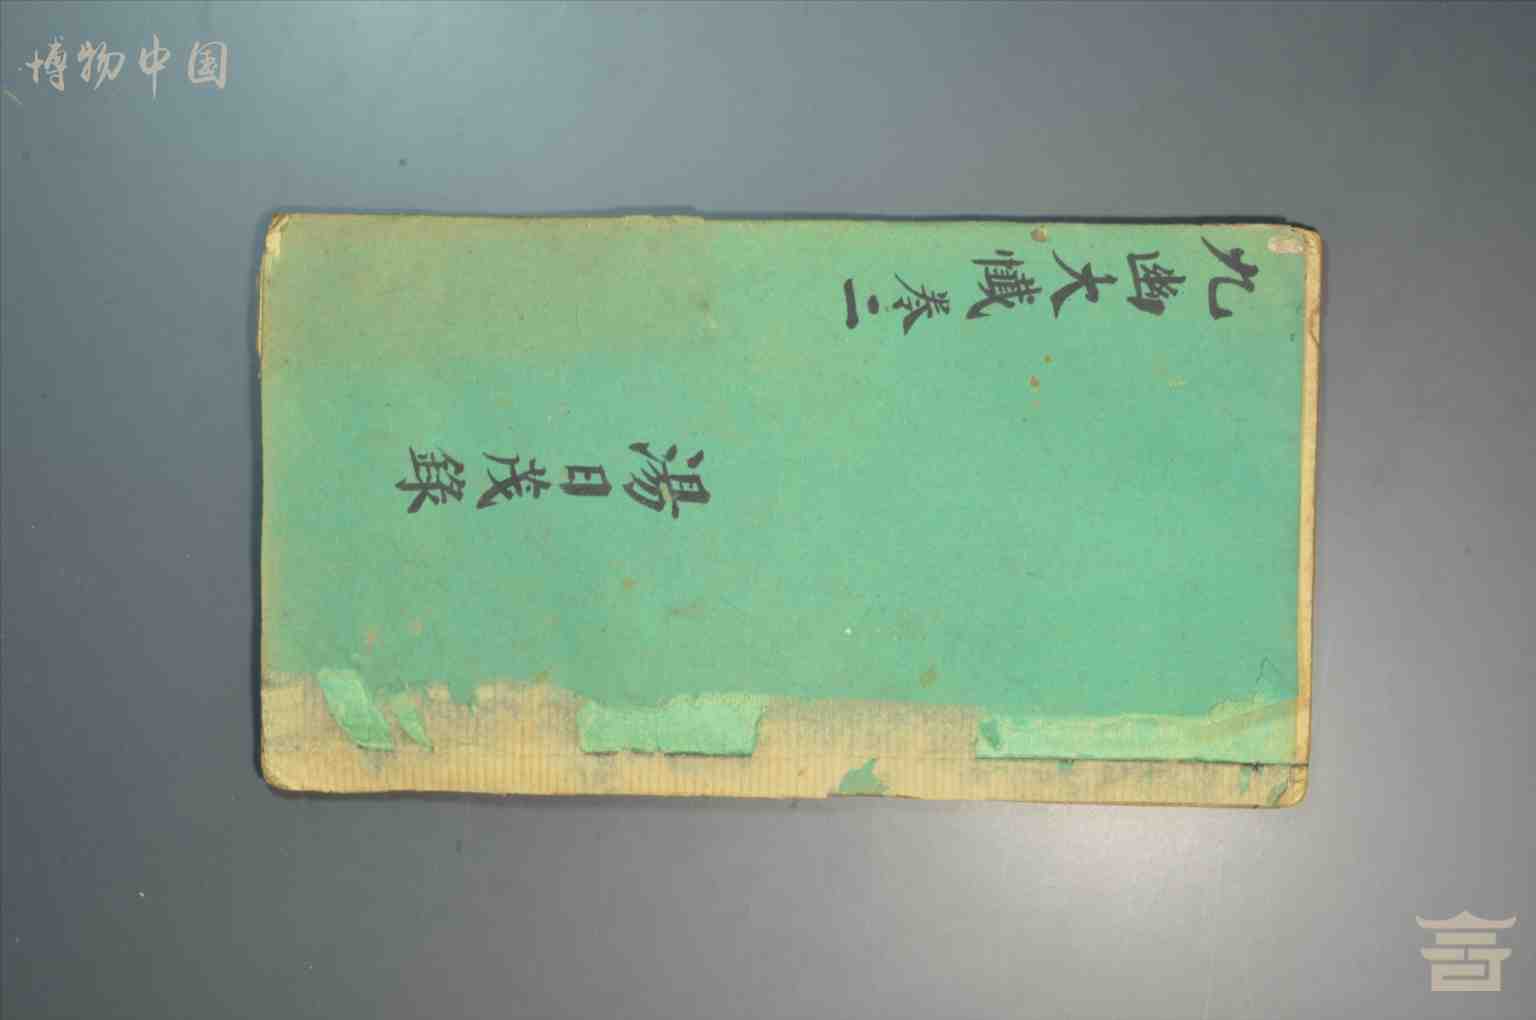 博物中国
九幽大懺卷二
湯日茂錄